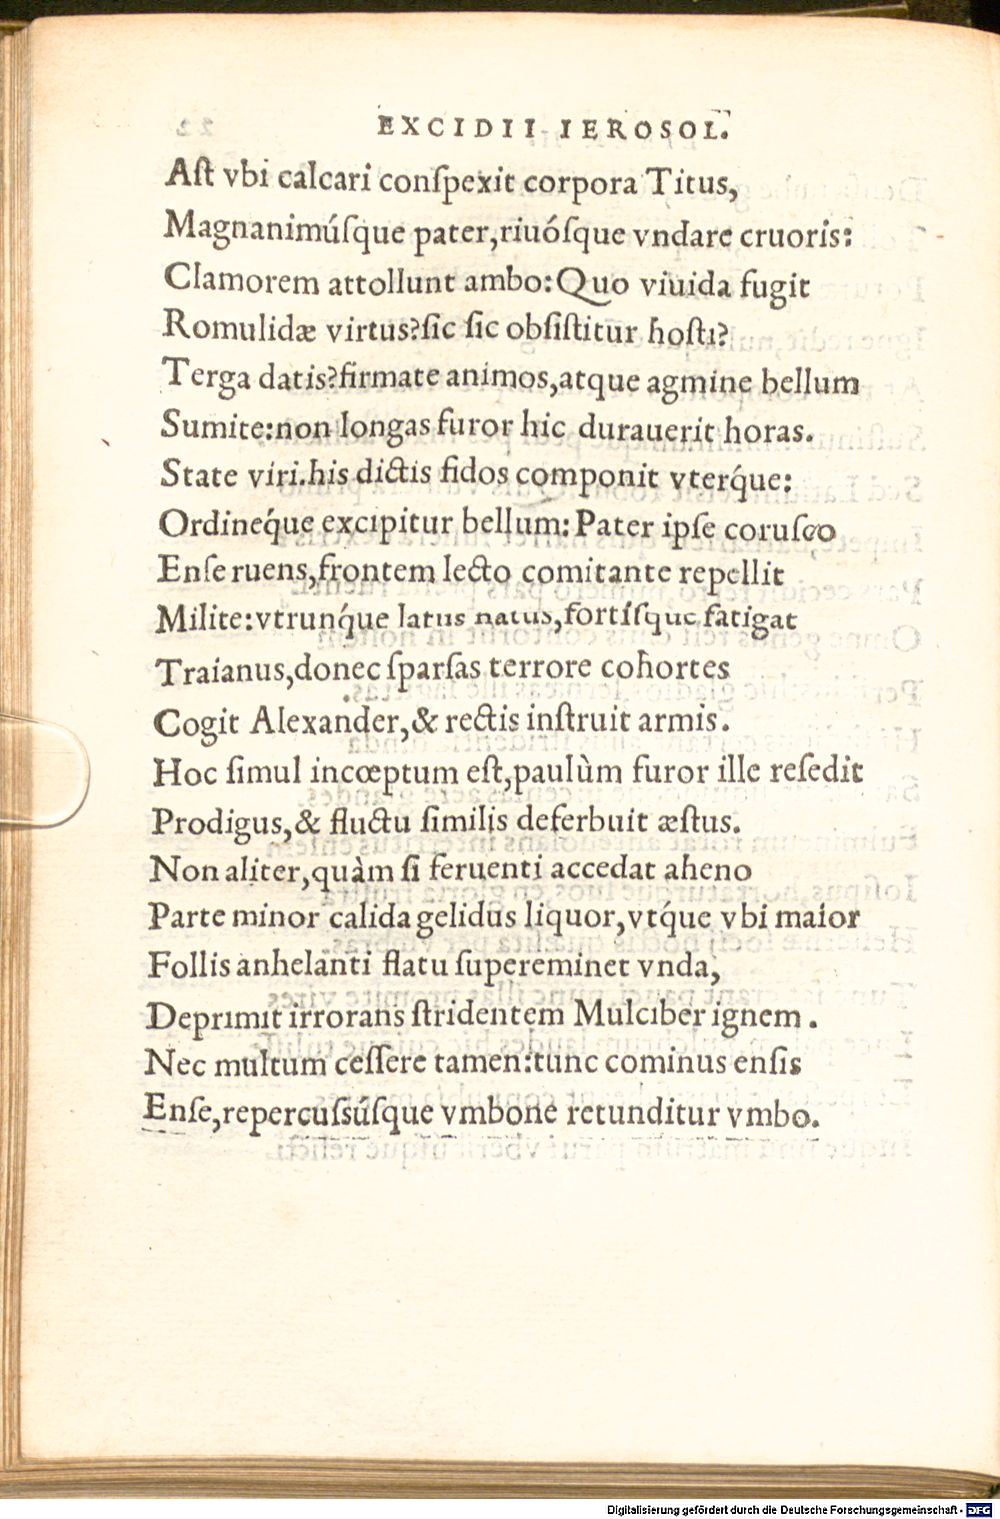 EXCIDII IEROSOL.
Aſt vbi calcari conſpexit corpora Titus,
Magnanimúſque pater,riuóſque vndare cruoris:
Clamorem attollunt ambo:Quo viuida fugit
Romulidæ virtus?ſic ſic obſiſtitur hoſti?
Terga datis?firmate animos,atque agmine bellum
Sumite:non longas furor hic durauerit horas.
State viri.his dictis fidos componit vterq́ue:
Ordineq́ue excipitur bellum:Pater ipſe coruſco
Enſe ruens,frontem lecto comitante repellit
Milite:vtrunq́ue latus natus,fortíſque fatigat
Traianus,donec ſparſas terrore cohortes
Cogit Alexander,& rectis inſtruit armis.
Hoc ſimul incœptum eſt,paulùm furor ille reſedit
Prodigus,& fluctu ſimilis deferbuit æſtus.
Non aliter,quàm ſi feruenti accedat aheno
Parte minor calida gelidus liquor,vtq́ue vbi maior
Follis anhelanti flatu ſupereminet vnda,
Deprimit irrorans ſtridentem Mulciber ignem.
Nec multum ceſſere tamen:tunc cominus enſis
Enſe,repercuſsúſque vmbone retunditur vmbo.
Digitalisierung gefördert durch die Deutsche Forschungsgemeinschaft - DFG